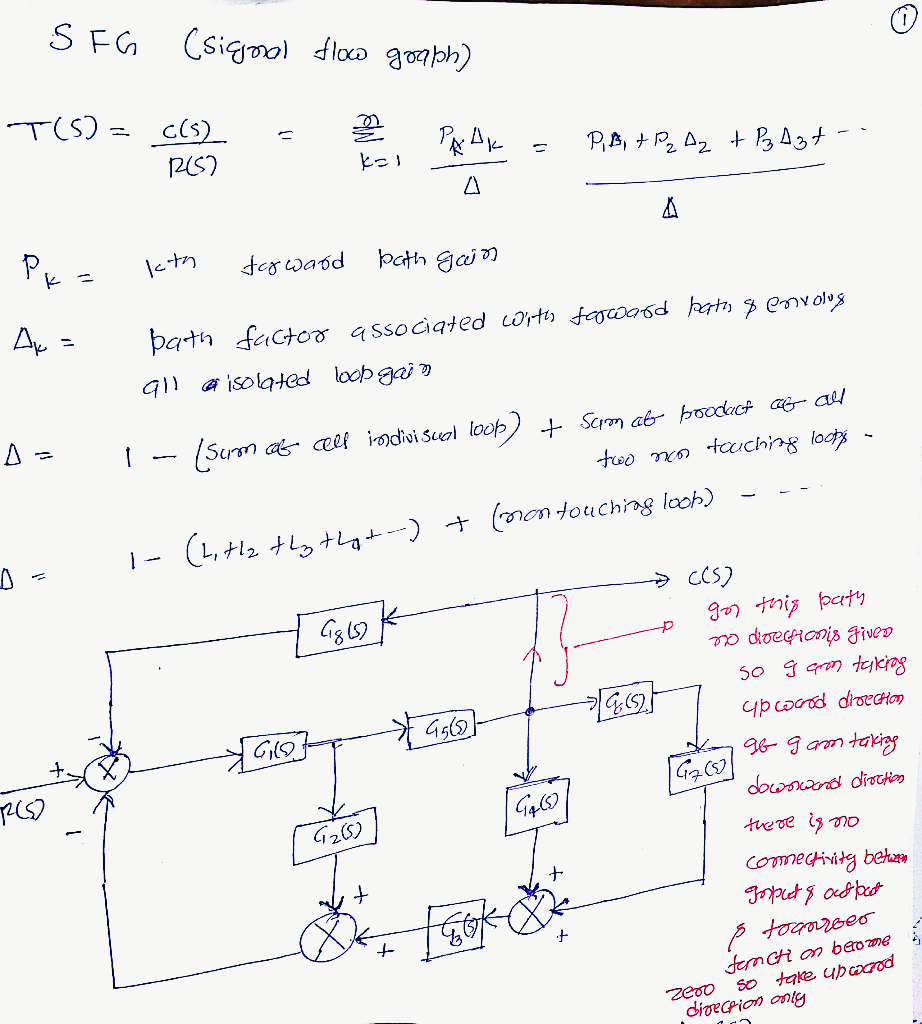 ①
SFG (Signal flow graph)
T(S) = C(S) / R(S) = n Σ k=1 Pk Δk / Δ = P1Δ1 + P2 Δ2 + P3 Δ3 + -- / Δ
Pk = kth forward path gain
Δk = path factor associated with forward path & envolvg
all isolated loop gain
Δ = 1 - (Sum of all individual loop) + Sum of product of all
two non touching loops -
Δ = 1 - (L1 + L2 + L3 + L4 + --) + (non touching loop) - ---
C(S)
G8(S)
In this path
no direction is given
so I am taking
upword direction
If I am taking
downword dirction
there is no
connectivity between
Input & output
& transfer
function become
zero so take upword
direction only
G1(S)
G5(S)
G6(S)
G7(S)
+
-
X
R(S)
-
G2(S)
G4(S)
+
+
X
+
G3(S)
X
+